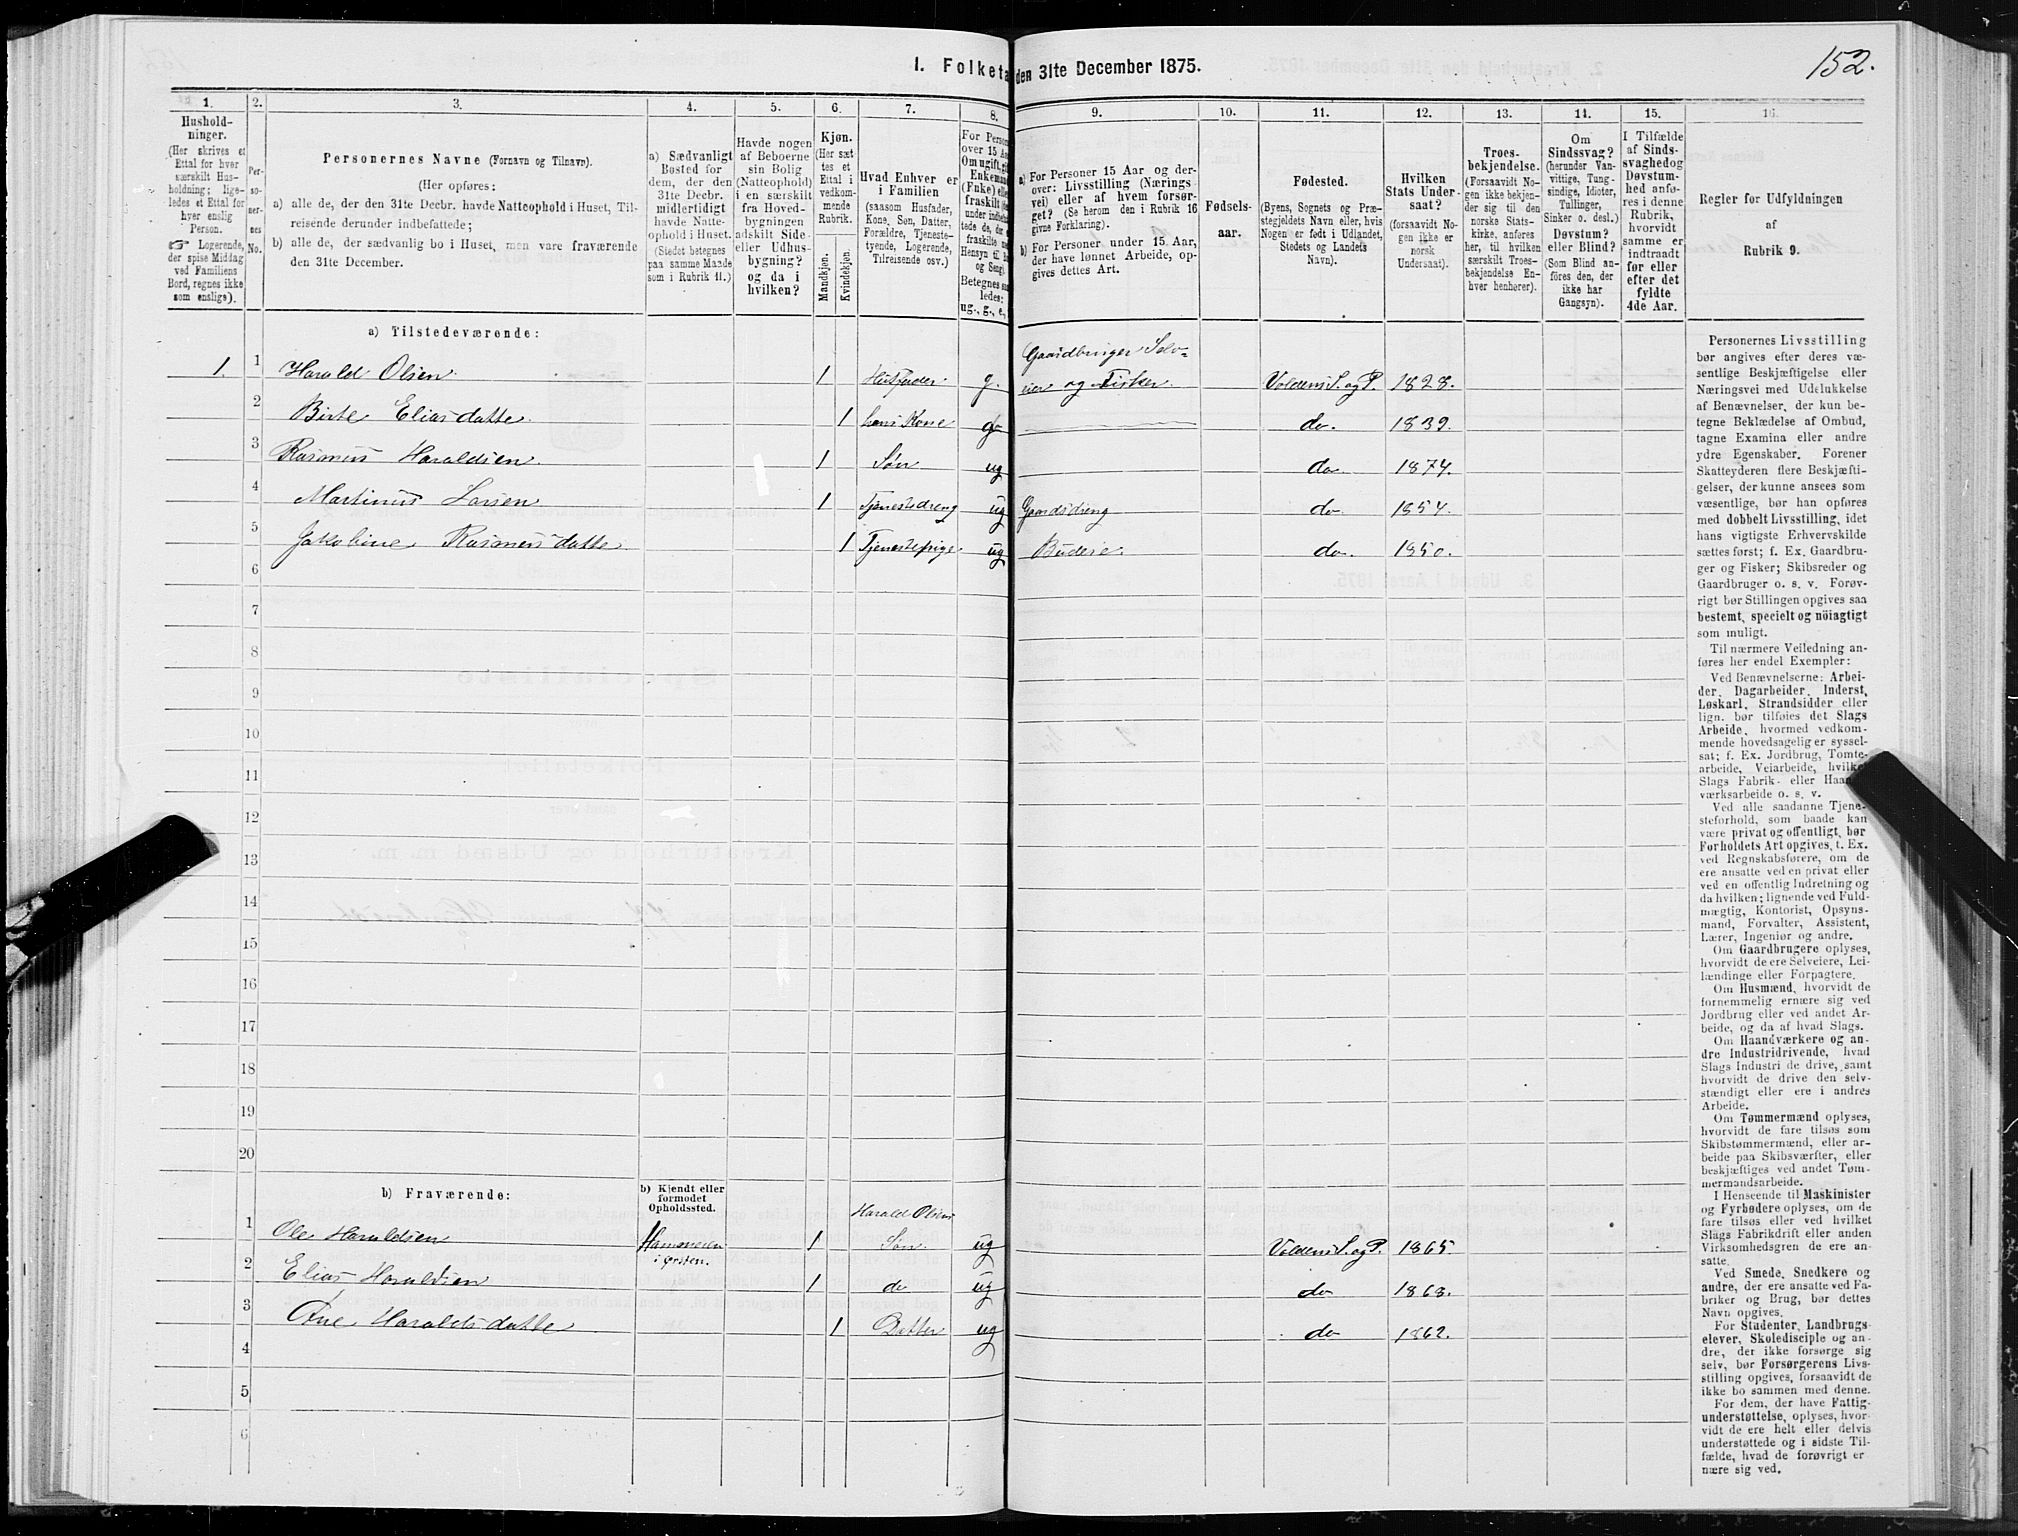 152.
I. Folketa
den 31te December 1875.
1. 2. 3. 4. 5. 6. 7. 8. 9. 10. 11. 12. 13. 14. 15. 16.
Hushold-
ninger.
(Her skrives et
Ettal for hver
særskilt Hus-
holdning; lige-
ledes et Ettal for
hver enslig
Person.
☞ Logerende,
der spise Middag
ved Familiens
Bord, regnes ikke
som enslige).
Per-
so-
ner-
nes
No.
Personernes Navne (Fornavn og Tilnavn).
(Her opføres:
a) alle de, der den 31te Decbr. havde Natteophold i Huset, Til-
reisende derunder indbefattede;
b) alle de, der sædvanlig bo i Huset, men vare fraværende
den 31te December.
a) Sædvanligt
Bosted for
dem, der den
31te Decbr.
midlertidigt
havde Natte-
ophold i Huset.
(Stedet betegnes
paa samme Maade
som i Rubrik 11.)
Havde nogen
af Beboerne
sin Bolig
(Natteophold)
i en særskilt
fra Hoved-
bygningen
adskilt Side-
eller Udhus-
bygning?
og da i
hvilken?
Kjøn.
(Her sæt
tes et
Ettal i
vedkom-
mende
Rubrik.
Mandkjøn.
Kvindekjøn.
Hvad Enhver er
i Familien
(saasom Husfader,
Kone, Søn, Datter,
Forældre, Tjeneste-
tyende, Logerende,
Tilreisende osv.)
For Person
over 15 Aar
Om ugift, gif
Enkemand
(Enke) elle
fraskilt
Betegnes saa
ledes:
ug., g., e.,
a) For Personer 15 Aar og der-
over: Livsstilling (Nærings
vei) eller af hvem forsør-
get? (Se herom den i Rubrik 16
givne Forklaring).
b) For Personer under 15 Aar,
der have lønnet Arbeide, op-
gives dettes Art.
Fødsels-
aar.
Fødested.
(Byens, Sognets og Præ-
stegjeldets Navn eller, hvis
Nogen er født i Udlandet,
Stedets og Landets
Navn).
Hvilken
Stats Under-
saat?
(forsaavidt No-
gen ikke er
norsk
Undersaat).
Troes-
bekjendelse.
(Forsaavidt No-
gen ikke bekjen-
der sig til den
norske Stats-
kirke, anføres
her, til hvilken
særskilt Troes-
bekjendelse En-
hver henhører).
Om
Sindssvag?
(herunder Van-
vittige, Tung-
sindige, Idioter,
Tullinger,
Sinker o. desl.)
Døvstum?
eller Blind?
(Som Blind an-
føres den, der
ikke har
Gangsyn).
I Tilfælde
af Sinds-
svaghed og
Døvstum-
hed anfø-
res i denne
Rubrik,
hvorvidt
samme er
indtraadt
før eller
efter det
fyldte
4de Aar.
Regler for Udfyldningen
af
Rubrik 9.
a) Tilstedeværende:
1. 1 Harald Olsen. 1 Husfader g. Gaardbruger Selv-
eier og Fisker. Voldens S. og P. 1828.
2 Birte Eliasdatte. 1 hans Kone g do. 1839.
3 Rasmus Haraldsen. 1 Søn ug do. 1874.
4 Martinus Larsen 1 Tjenestdreng ug Gaardsdreng do 1854.
5 Jakobine Rasmusdatte 1 Tjenestepige ug Budeie. do. 1850.
6
7
8
9
10
11
12
13
14
15
16
17
18
19
20
b) Fraværende:
b) Kjendt eller
formodet
Opholdssted.
Harald Olsens
1 Ole Haraldsen i Ørsten. 1 Søn. ug Voldens S. og P. 1865.
2 Elias Haraldsen 1 do ug do 1868.
3 Ane Haraldsdatte 1 Datter ug do 1862.
4
5
6
Personernes Livsstilling
bør angives efter deres væ-
sentlige Beskjæftigelse eller
Næringsvei med Udelukkelse
af Benævnelser, der kun be-
tegne Beklædelse af Ombud,
tagne Examina eller andre
ydre Egenskaber. Forener
Skatteyderen flere Beskjæfti-
gelser, der kunne ansees som
væsentlige, bør han opføres
med dobbelt Livsstilling, idet
hans vigtigste Erhvervskilde
sættes først; f. Ex. Gaardbru-
ger og Fisker; Skibsreder og
Gaardbruger o. s. v. Forøv-
rigt bør Stillingen opgives saa
bestemt, specielt og nøiagtigt
som muligt.
Til nærmere Veiledning an-
føres her endel Exempler:
Ved Benævnelserne: Arbei-
der, Dagarbeider, Inderst,
Løskarl, Strandsidder eller
lign. bør tilføies det Slags
Arbeide, hvormed vedkom-
mende hovedsagelig er syssel-
sat; f. Ex. Jordbrug, Tomte-
arbeide, Veiarbeide, hvilket
Slags Fabrik- eller Haand-
værksarbeide o. s. v.
Ved alle saadanne Tjene-
steforhold, som baade kan
være privat og offentligt, bør
Forholdets Art opgives, t. Ex.
ved Regnskabsførere, om de
ere ansatte ved en privat eller
ved en offentlig Indretning og
da hvilken; lignende ved Fuld-
mægtig, Kontorist, Opsyns-
mand, Forvalter, Assistent,
Lærer, Ingeniør og andre.
Om Gaardbrugere oplyses,
hvorvidt de ere Selveiere, Lei-
lændinge eller Forpagtere.
Om Husmænd, hvorvidt de
fornemmelig ernære sig ved
Jordbrug eller ved andet Ar-
beide, og da af hvad Slags.
Om Haandværkere og an-
dre Industridrivende, hvad
Slags Industri de drive, samt
hvorvidt de drive den selv-
stændigt eller ere i andres
Arbeide.
Om Tømmermænd oplyses,
hvorvidt de fare tilsøs som
Skibstømmermænd, eller ar-
beide paa Skibsværfter, eller
beskjæftiges ved andet Tøm-
mermandsarbeide.
I Henseende til Maskinister
og Fyrbødere oplyses, om de
fare tilsøs eller ved hvilket
Slags Fabrikdrift eller anden
Virksomhedsgren de ere an-
satte.
Ved Smede, Snedkere og
andre, der ere ansatte ved Fa-
briker og Brug, bør dettes
Navn opgives.
For Studenter, Landbrugs-
elever, Skoledisciple og an-
dre, der ikke forsørge sig
selv, bør Forsørgerens Livs-
stilling opgives, forsaavidt de
ikke bo sammen med denne.
For dem, der have Fattig-
understøttelse, oplyses, hvor-
vidt de ere helt eller delvis
understøttede og i sidste Til-
fælde, hvad de forøvrigt er-
nære sig ved.